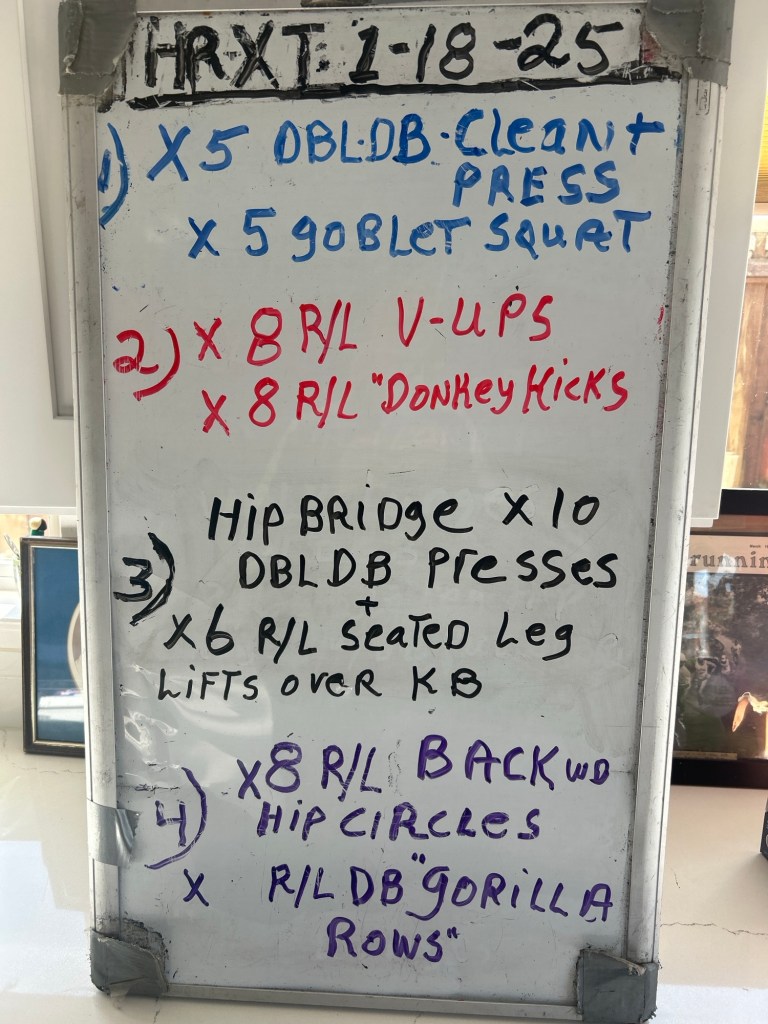 HRXT: 1-18-25
1) X5 DBL·DB·Clean+
PRESS
x 5 goBLeT SQUAT
2) x 8 R/L V-UPS
x 8 R/L "DonKey Kicks
Hip BRiDge x 10
3) DBL DB Presses
+
x6 R/L SeaTeD Leg
LiFTS oveR KB
x8 R/L BACKWD
4) HiP CiRCLeS
x R/L DB "goRiLLA
Rows"
runnin